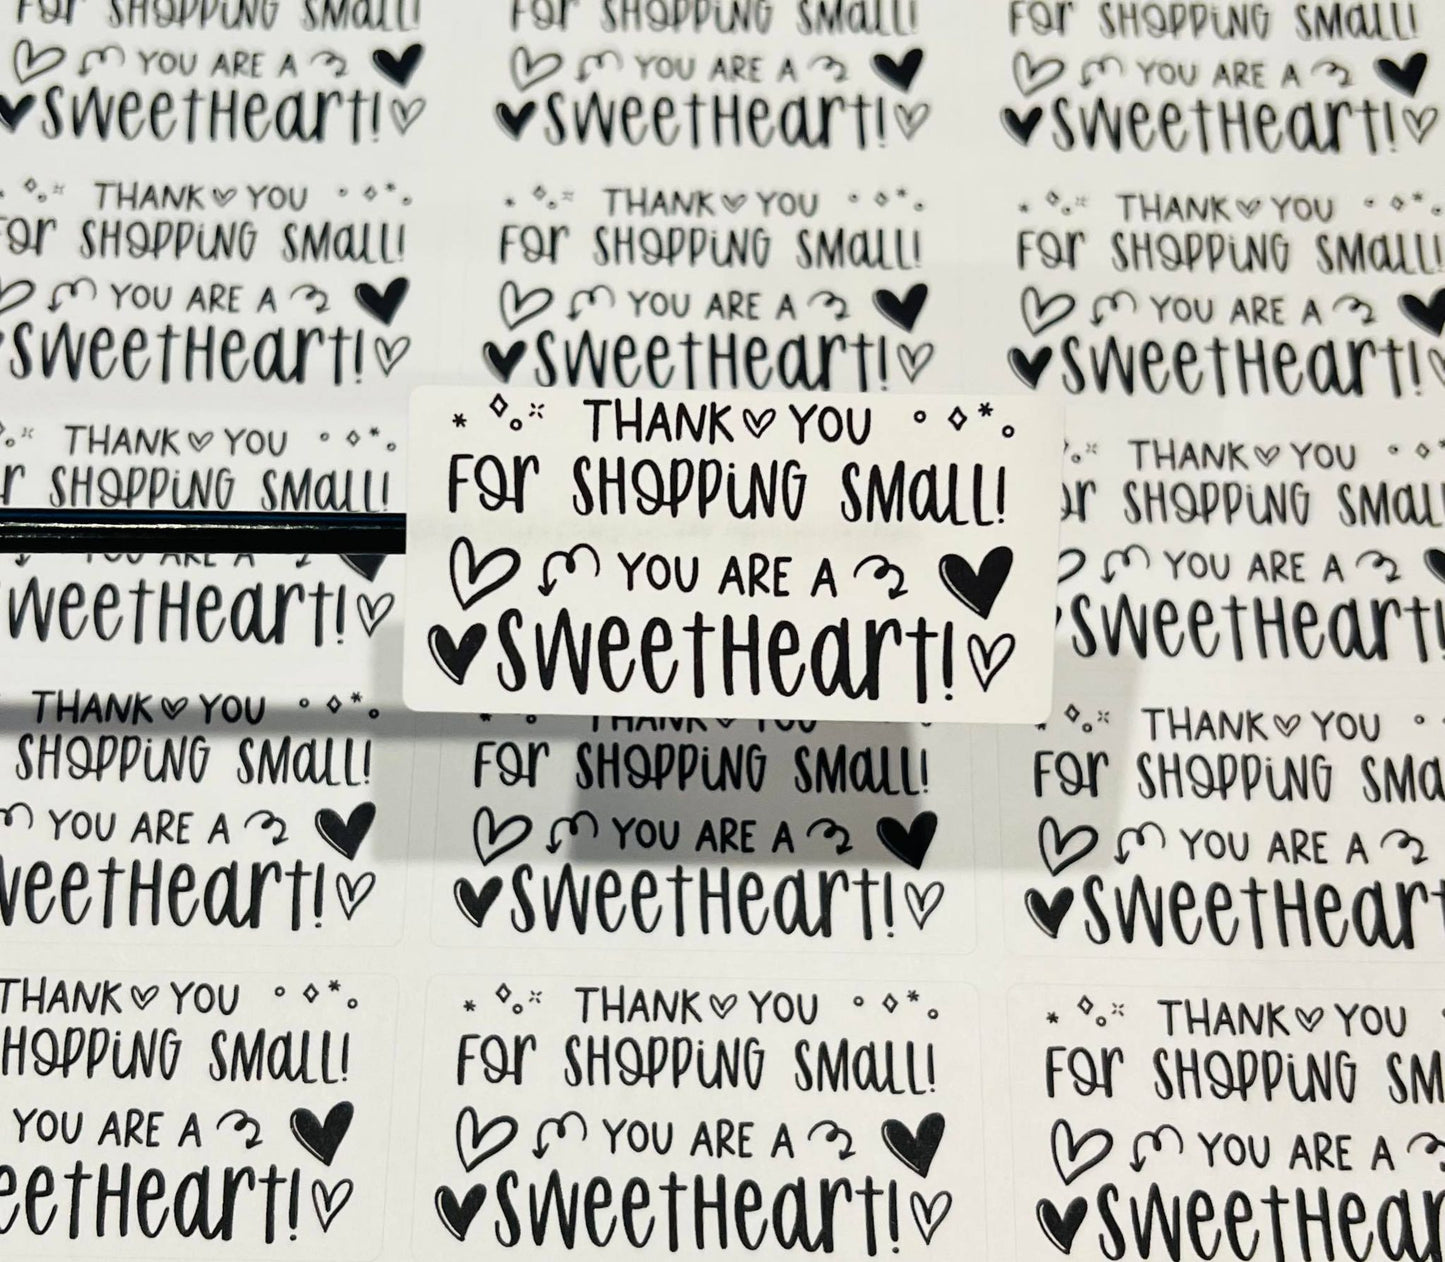 FOr SHOPPiNG SMaLL!
YOU ARE A
SWeetHeart!
FOr SHOPPiNG SMaLL!
YOU ARE A
SWeetHeart!
FOr SHOPPiNG SMaLL!
YOU ARE A
SWeetHeart!
THANK YOU
FOr SHOPPiNG SMaLL!
YOU ARE A
SWeetHeart!
THANK YOU
FOr SHOPPiNG SMaLL!
YOU ARE A
SWeetHeart!
THANK YOU
FOr SHOPPiNG SMaLL!
YOU ARE A
SWeetHeart!
THANK YOU
SHOPPiNG SMaLL!
YOU ARE A
WeetHeart!
THANK YOU
FOr SHOPPiNG SMaLL!
YOU ARE A
SWeetHeart!
THANK YOU
Or SHOPPiNG SMaLL
YOU ARE A
SWeetHeart!
THANK YOU
SHOPPiNG SMaLL!
YOU ARE A
WeetHeart!
THANK YOU
FOr SHOPPiNG SMaLL!
YOU ARE A
SWeetHeart!
THANK YOU
FOr SHOPPiNG SMa
YOU ARE A
SWeetHeart
THANK YOU
HOPPiNG SMaLL!
YOU ARE A
eetHeart!
THANK YOU
FOr SHOPPiNG SMaLL!
YOU ARE A
SWeetHeart!
THANK YOU
FOr SHOPPiNG SM
YOU ARE A
SWeetHear